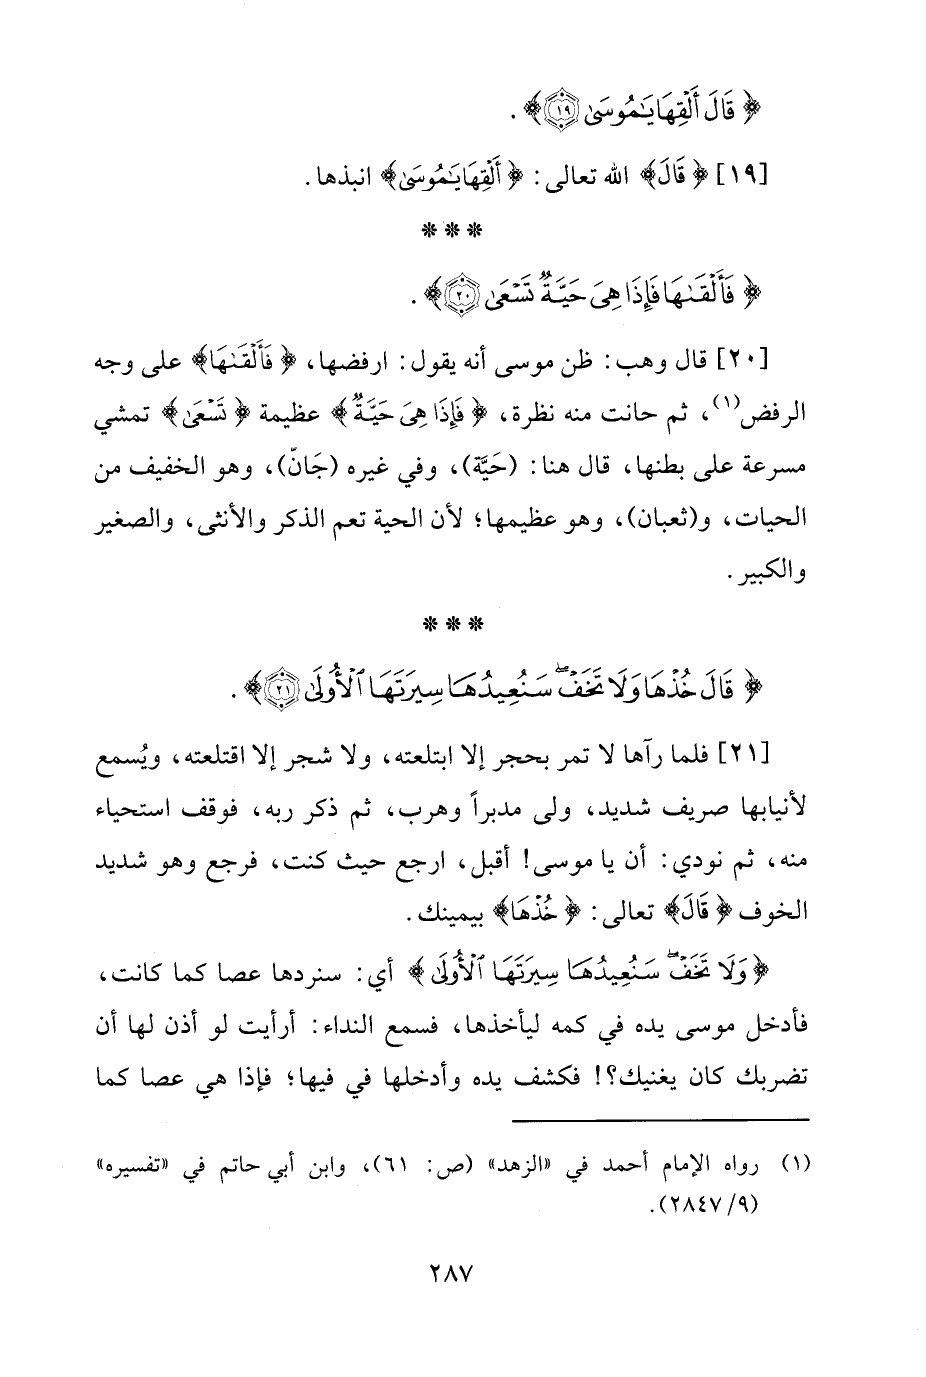 ﴿ قَالَ أَلْقِهَا يَٰمُوسَىٰ ١٩﴾ .
[١٩] ﴿ قَالَ﴾ الله تعالى: ﴿ أَلْقِهَا يَٰمُوسَىٰ﴾ انبذها .
* * *
﴿ فَأَلْقَىٰهَا فَإِذَا هِىَ حَيَّةٌ تَسْعَىٰ ٢٠﴾ .
[٢٠] قال وهب: ظن موسى أنه يقول: ارفضها، ﴿ فَأَلْقَىٰهَا﴾ على وجه
الرفض(١)، ثم حانت منه نظرة، ﴿ فَإِذَا هِىَ حَيَّةٌ﴾ عظيمة ﴿ تَسْعَىٰ﴾ تمشي
مسرعة على بطنها، قال هنا: (حَيَّة)، وفي غيره (جَانّ)، وهو الخفيف من
الحيات، و(ثعبان)، وهو عظيمها؛ لأن الحية تعم الذكر والأنثى، والصغير
والكبير .
* * *
﴿ قَالَ خُذْهَا وَلَا تَخَفْ ۖ سَنُعِيدُهَا سِيرَتَهَا ٱلْأُولَىٰ ٢١﴾ .
[٢١] فلما رآها لا تمر بحجر إلا ابتلعته، ولا شجر إلا اقتلعته، ويُسمع
لأنيابها صريف شديد، ولى مدبراً وهرب، ثم ذكر ربه، فوقف استحياء
منه، ثم نودي: أن يا موسى! أقبل، ارجع حيث كنت، فرجع وهو شديد
الخوف ﴿ قَالَ﴾ تعالى: ﴿ خُذْهَا﴾ بيمينك .
﴿ وَلَا تَخَفْ ۖ سَنُعِيدُهَا سِيرَتَهَا ٱلْأُولَىٰ ﴾ أي: سنردها عصا كما كانت،
فأدخل موسى يده في كمه ليأخذها، فسمع النداء: أرأيت لو أذن لها أن
تضربك كان يغنيك؟! فكشف يده وأدخلها في فيها؛ فإذا هي عصا كما
(١) رواه الإمام أحمد في «الزهد» (ص: ٦١)، وابن أبي حاتم في «تفسيره»
(٩/ ٢٨٤٧).
٢٨٧